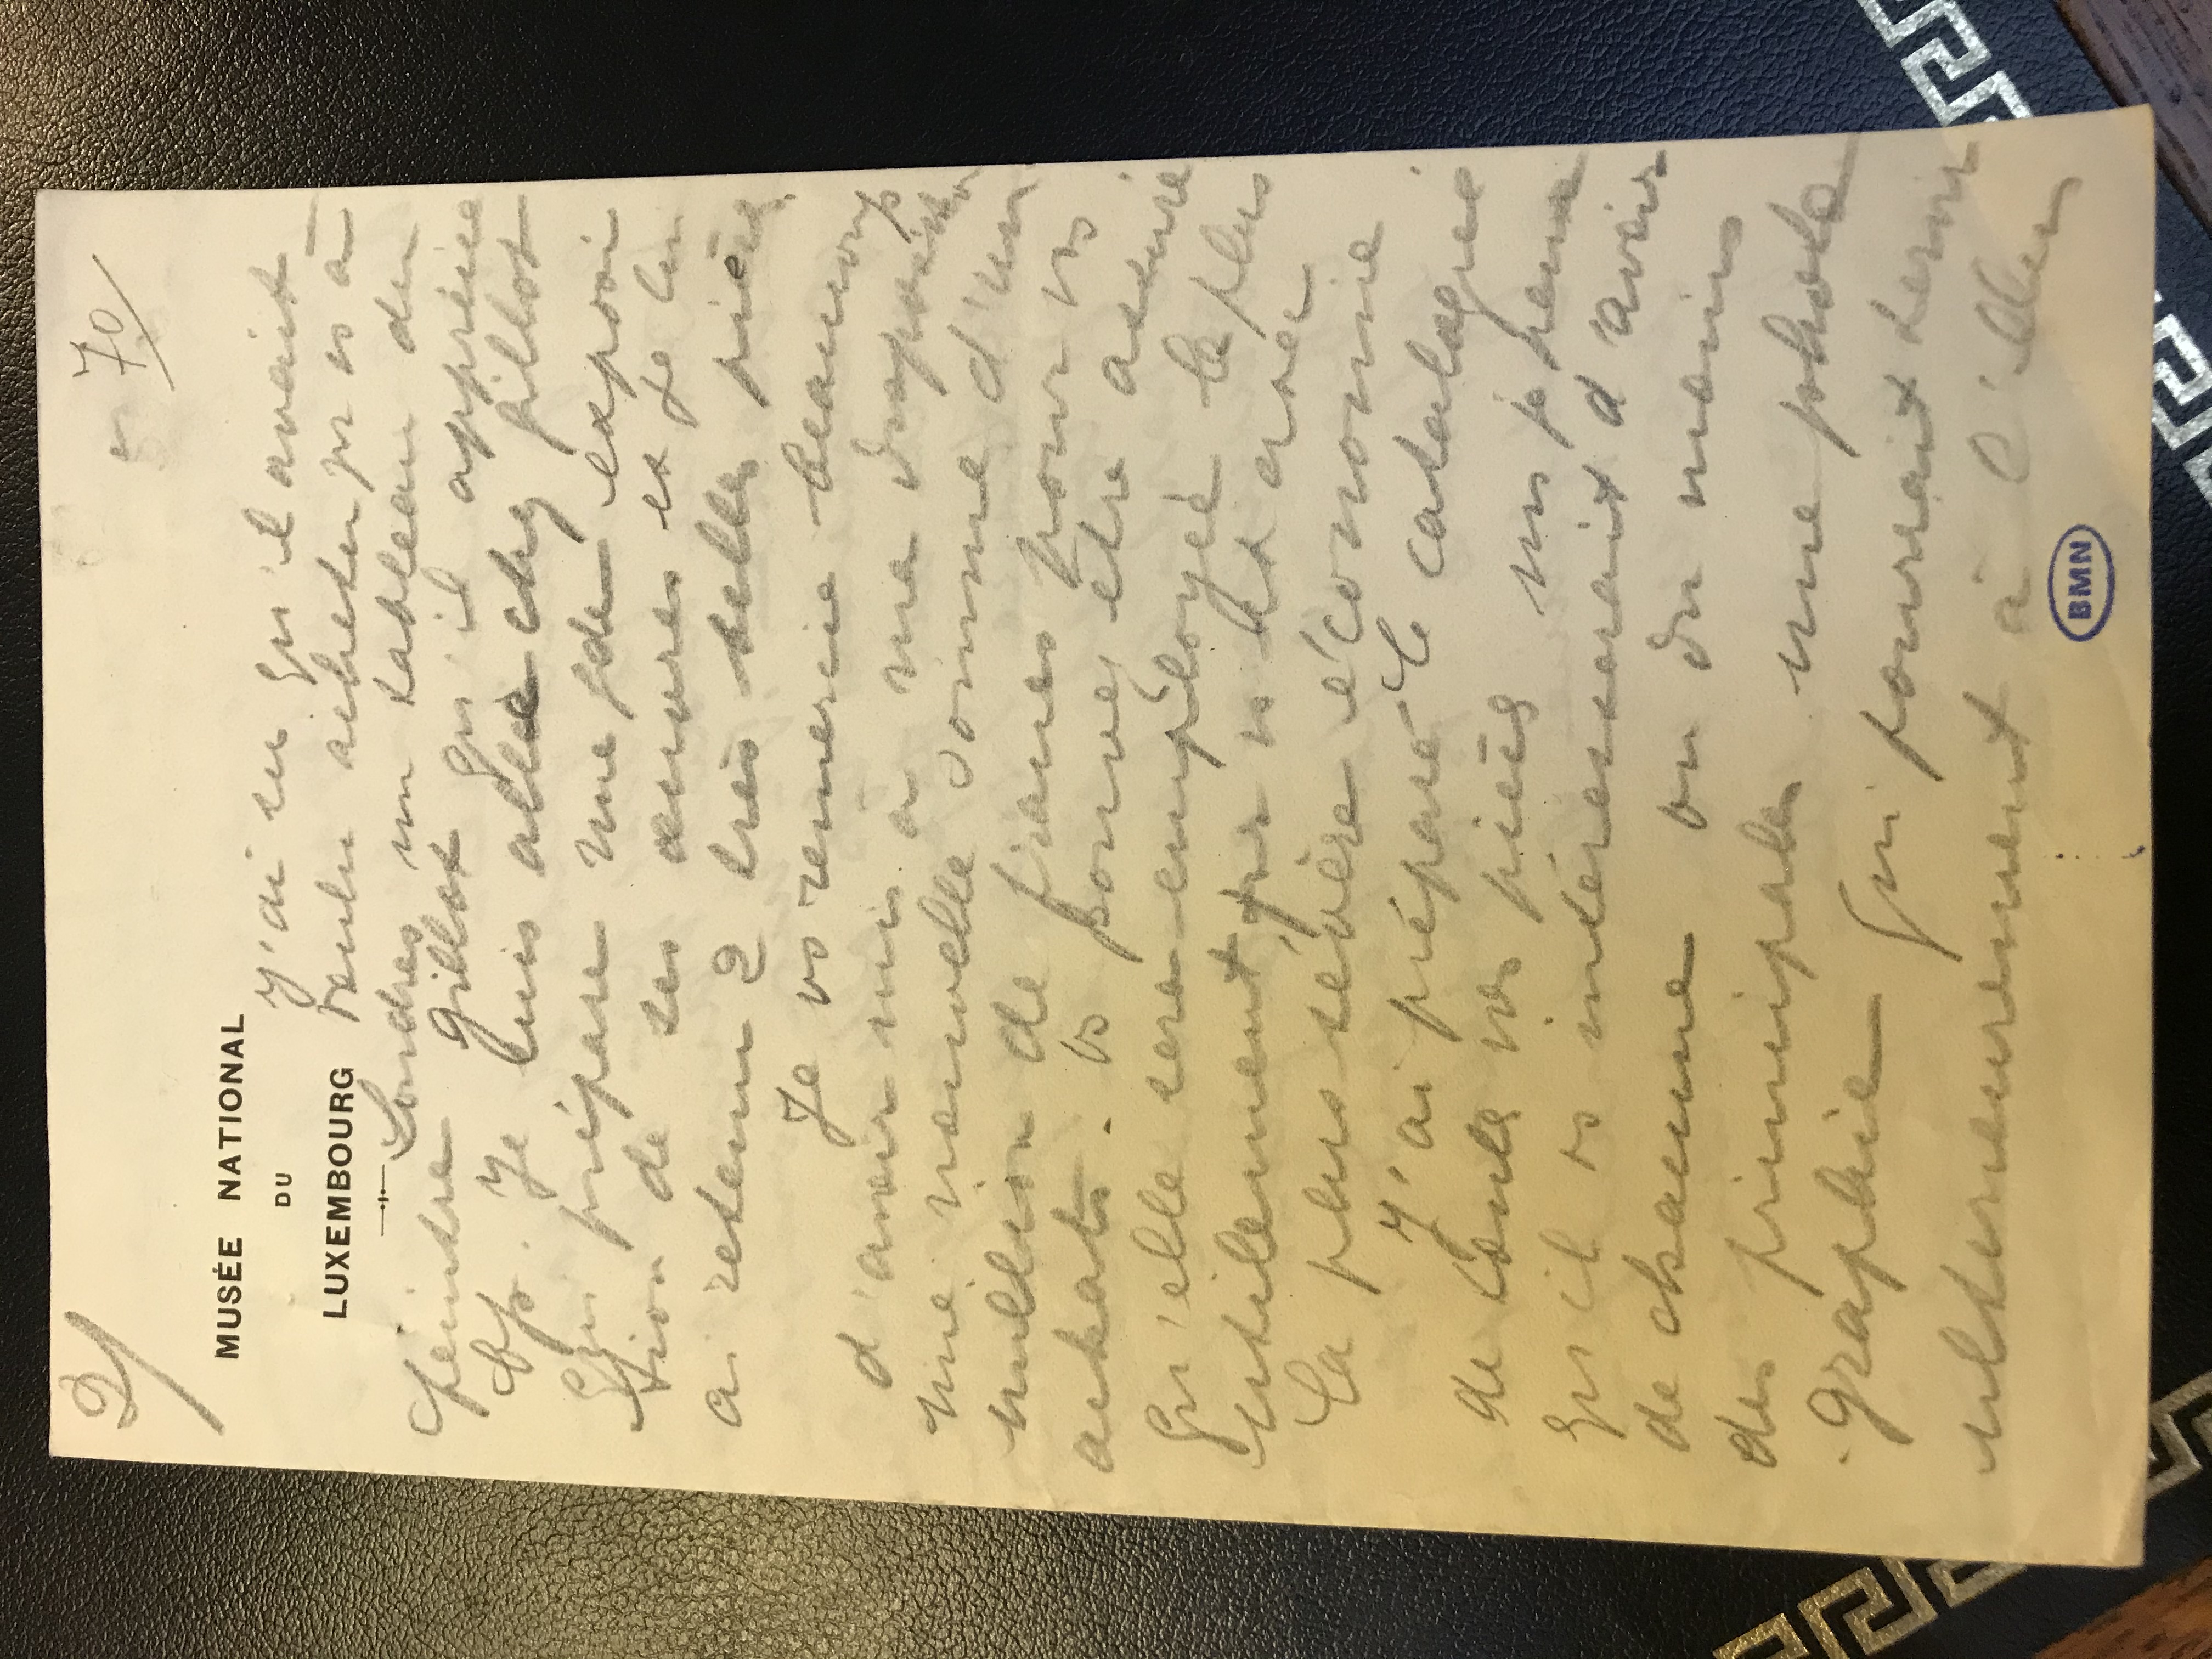 2/
70
MUSÉE NATIONAL
DU
LUXEMBOURG
J'ai su qu'il avait
fallu acheter pr vs à
Londres un tableau du
peintre Gillot qu'il apprécie
bp. Je suis allée chez Gillot
qui prépare une gde exposi
tion de ses œuvres et je lui
ai retenu 2 très belles pièces.
Je vs remercie beaucoup
d'avoir mis à ma disposition
une nouvelle somme d'un
million de francs pour vos
achats. Vs pouvez être assuré
qu'elle sera employée le plus
utilement pr vs et avec
la plus sévère économie
J'ai préparé le catalogue
de toutes vos pièces
qu'il vs intéresserait d'avoir
de chacune ou du moins
des principales une photo
graphie qui pourrait servir
ultérieurement à l'illus
BMN